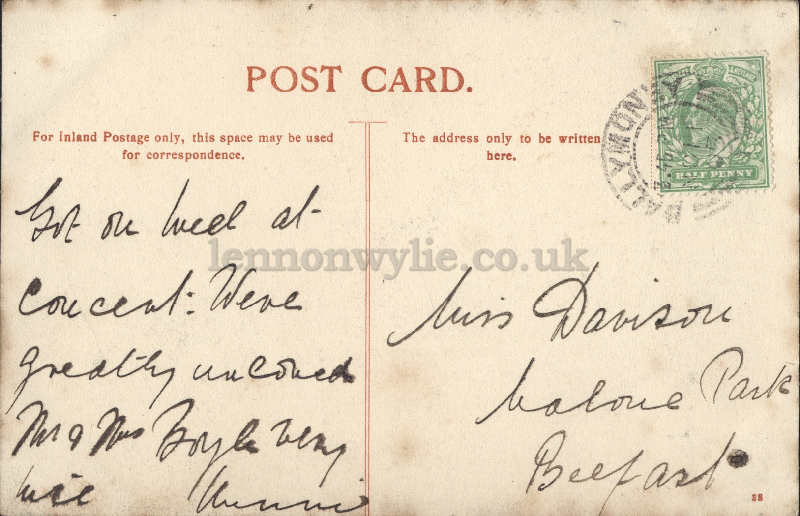 POST CARD.
For Inland Postage only, this space may be used
for correspondence.
The address only to be written
here.
BALLYMONEY
HALF PENNY
lennonwylie.co.uk
Got on well at
concert. Were
greatly
Mr & Mrs Boyle very
nice
Miss Davison
Malone Park
Belfast
38